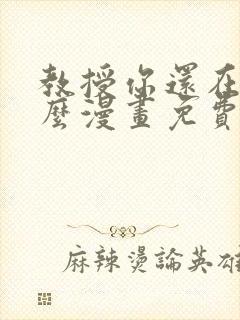 教授你還在
麼漫畫免費
麻辣燙論英雄